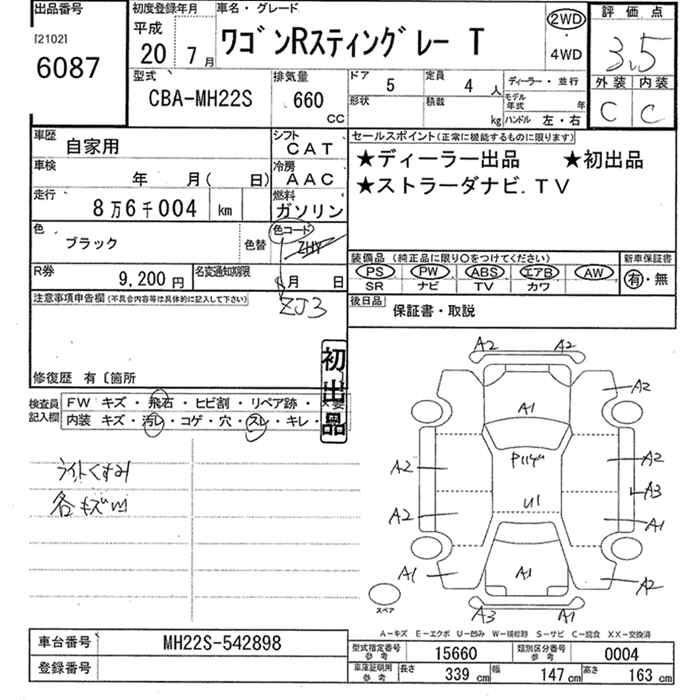 出品番号 初度登録年月 車名・グレード 評価点
[2102] 平成
6087 20年 7月 ワゴンRスティングレー T 2WD・4WD 3.5
型式 排気量 ドア 5 定員 4人 ディーラー・並行 外装 内装
CBA-MH22S 660 CC 形状 積載 kg モデル年式 年 C C
ハンドル 左・右
車歴 自家用 シフト CAT セールスポイント(正常に機能するものに限ります)
車検 年 月( 日) 冷房 AAC ★ディーラー出品 ★初出品
走行 8万6千004 km 燃料 ガソリン ★ストラーダナビ.TV
色 ブラック 色替 色コード ZHY
装備品(純正品に限り○をつけてください) 新車保証書
R券 9,200円 名変通知期限 月 日 PS PW ABS エアB AW 有・無
ZJ3 SR ナビ TV カワ
注意事項申告欄(不具合内容等は具体的に記入して下さい) 後日品 保証書・取説
修復歴 有〔箇所
初出品
検査員記入欄 FW キズ・飛石・ヒビ割・リペア跡・×要
内装 キズ・汚レ・コゲ・穴・スレ・キレ・
ライトくすみ
各キズ凹
A2 A2
A2 A2
A1
A2 A2
A3
A2 U1 A1
A1 A1 A2
A3 A1
スペア
A-キズ E-エクボ U-凹み W-補修跡 S-サビ C-腐食 XX-交換済
車台番号 MH22S-542898 型式指定番号 参考 15660 類別区分番号 参考 0004
登録番号 車庫証明用 参考 長さ 339 cm 幅 147 cm 高さ 163 cm